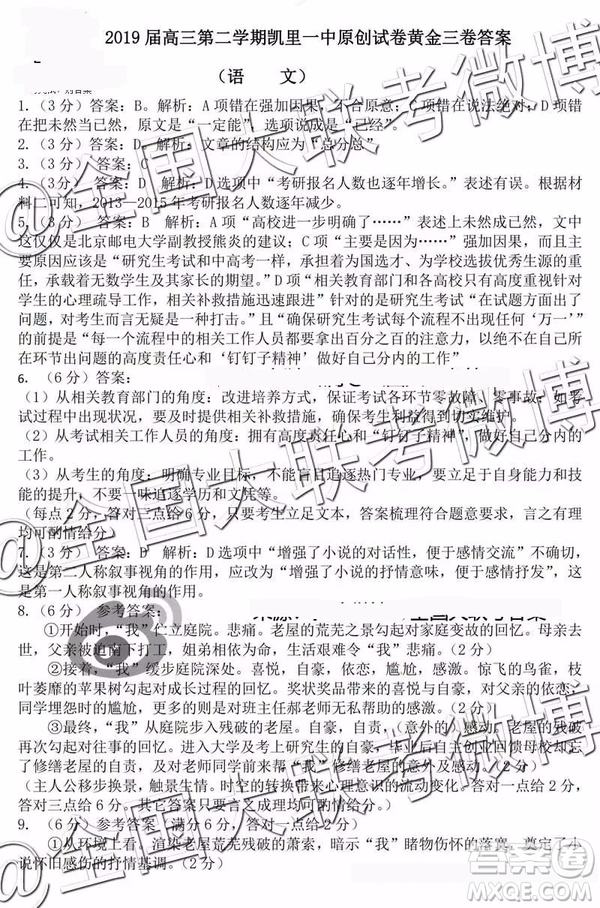 2019 届高三第二学期凯里一中原创试卷黄金三卷答案
（语 文）
1.（3 分）答案：B。解析：A 项错在强加因果，不合原意；C 项错在说法绝对；D 项错
在把未然当已然，原文是“一定能”，选项说成是“已经”。
2.（3 分）答案：D 解析：文章的结构应为“总分总”
3.（3 分）答案：C
4.（3 分）答案：D 解析：“考研报名人数也逐年增长。”表述有误。根据材
料二可知，2013—2015 年考研报名人数逐年减少。
5.（3 分）答案：B 解析：A 项“高校进一步明确了……”表述上未然成已然，文中
这仅仅是北京邮电大学副教授熊炎的建议；C 项“主要是因为……”强加因果，而主
要原因应该是“研究生考试和中高考一样，承担着为国选才、为学校选拔优秀生源的重
任，承载着无数学生及其家长的期望。”D 项“相关教育部门和各高校只有高度重视针对
学生的心理疏导工作，并相关补救措施避免失误”针对的是研究生考试“在试题方面出了
问题，对考生而言无疑是一种打击。”且“确保研究生考试每个流程不出现任何‘万一’”
的前提是“每一个流程的相关工作人员都要拿出百分之百的注意力，以绝不在自己所
在环节出问题的高度责任心和‘钉钉子精神’做好自己分内的工作”
6.（6 分）答案：
（1）从相关教育部门的角度：改进培养方式，保证考试各环节零故障，零事故；如考
试过程中出现状况，要及时提供相关补救措施，确保考生利益得到切实保障。
（2）从考试相关工作人员的角度：拥有高度责任心和“钉钉子精神”，做好自己分内的
工作。
（3）从考生的角度：明确专业目标，不能盲目追逐热门专业，要立足于自身能力及技
能的提升，不要一味追逐学历和文凭等。
（每点 2 分，答对三点给 6 分，意思对即给分。答案梳理符合题意要求，言之有理
均可酌情给分）
7.（3 分）答案：D 解析：D 选项中“增强了小说的对话性，便于感情交流”不妥，
这是第二人称叙事视角的作用，应改为“增强了小说的抒情意味，便于感情抒发”。
8.（6 分）参考答案：
①开始时，“我”伫立庭院。悲痛。老屋的荒芜之景勾起对家庭变故的回忆。母亲去
世，父亲被迫南下打工，姐弟相依为命，生活艰难，令人悲痛。（2 分）
②接着，“我”缓步庭院深景。喜悦，自豪，依恋，尴尬，感激。惊飞的鸟雀，枝
叶萎靡的苹果树勾起对成长过程的回忆。奖状奖品带来的喜悦与自豪，撕作业本，
同学埋怨时的尴尬，以及对班主任郝老师无私帮助的感激。（2 分）
③最终，“我”从庭院移步入残破的老屋。自豪，自责，感激，无奈。老屋的残破
再次勾起对过往经历的回忆。进入大学及考上研究生的自豪，不能立业回馈母校和
了修缮老屋的自责，对父亲理解的感激，老屋终究无法修缮的无奈。（2 分）
（主人公移步换景，触景生情。时空的转换带来心理意识的流动与变化。答对一点给 2
分，答对三点给 6 分。其它答案符合题意要求，言之有理均可酌情给分）
9.（6 分）参考答案：满分 6 分，答对一点给 2 分）
①从环境上看，渲染老屋荒芜残破的萧索氛围，暗示“我”睹物伤怀的落寞，奠定了小
说怀旧感伤的抒情基调。（2 分）
@全国大联考微博
@全国大联考微博
答案卷